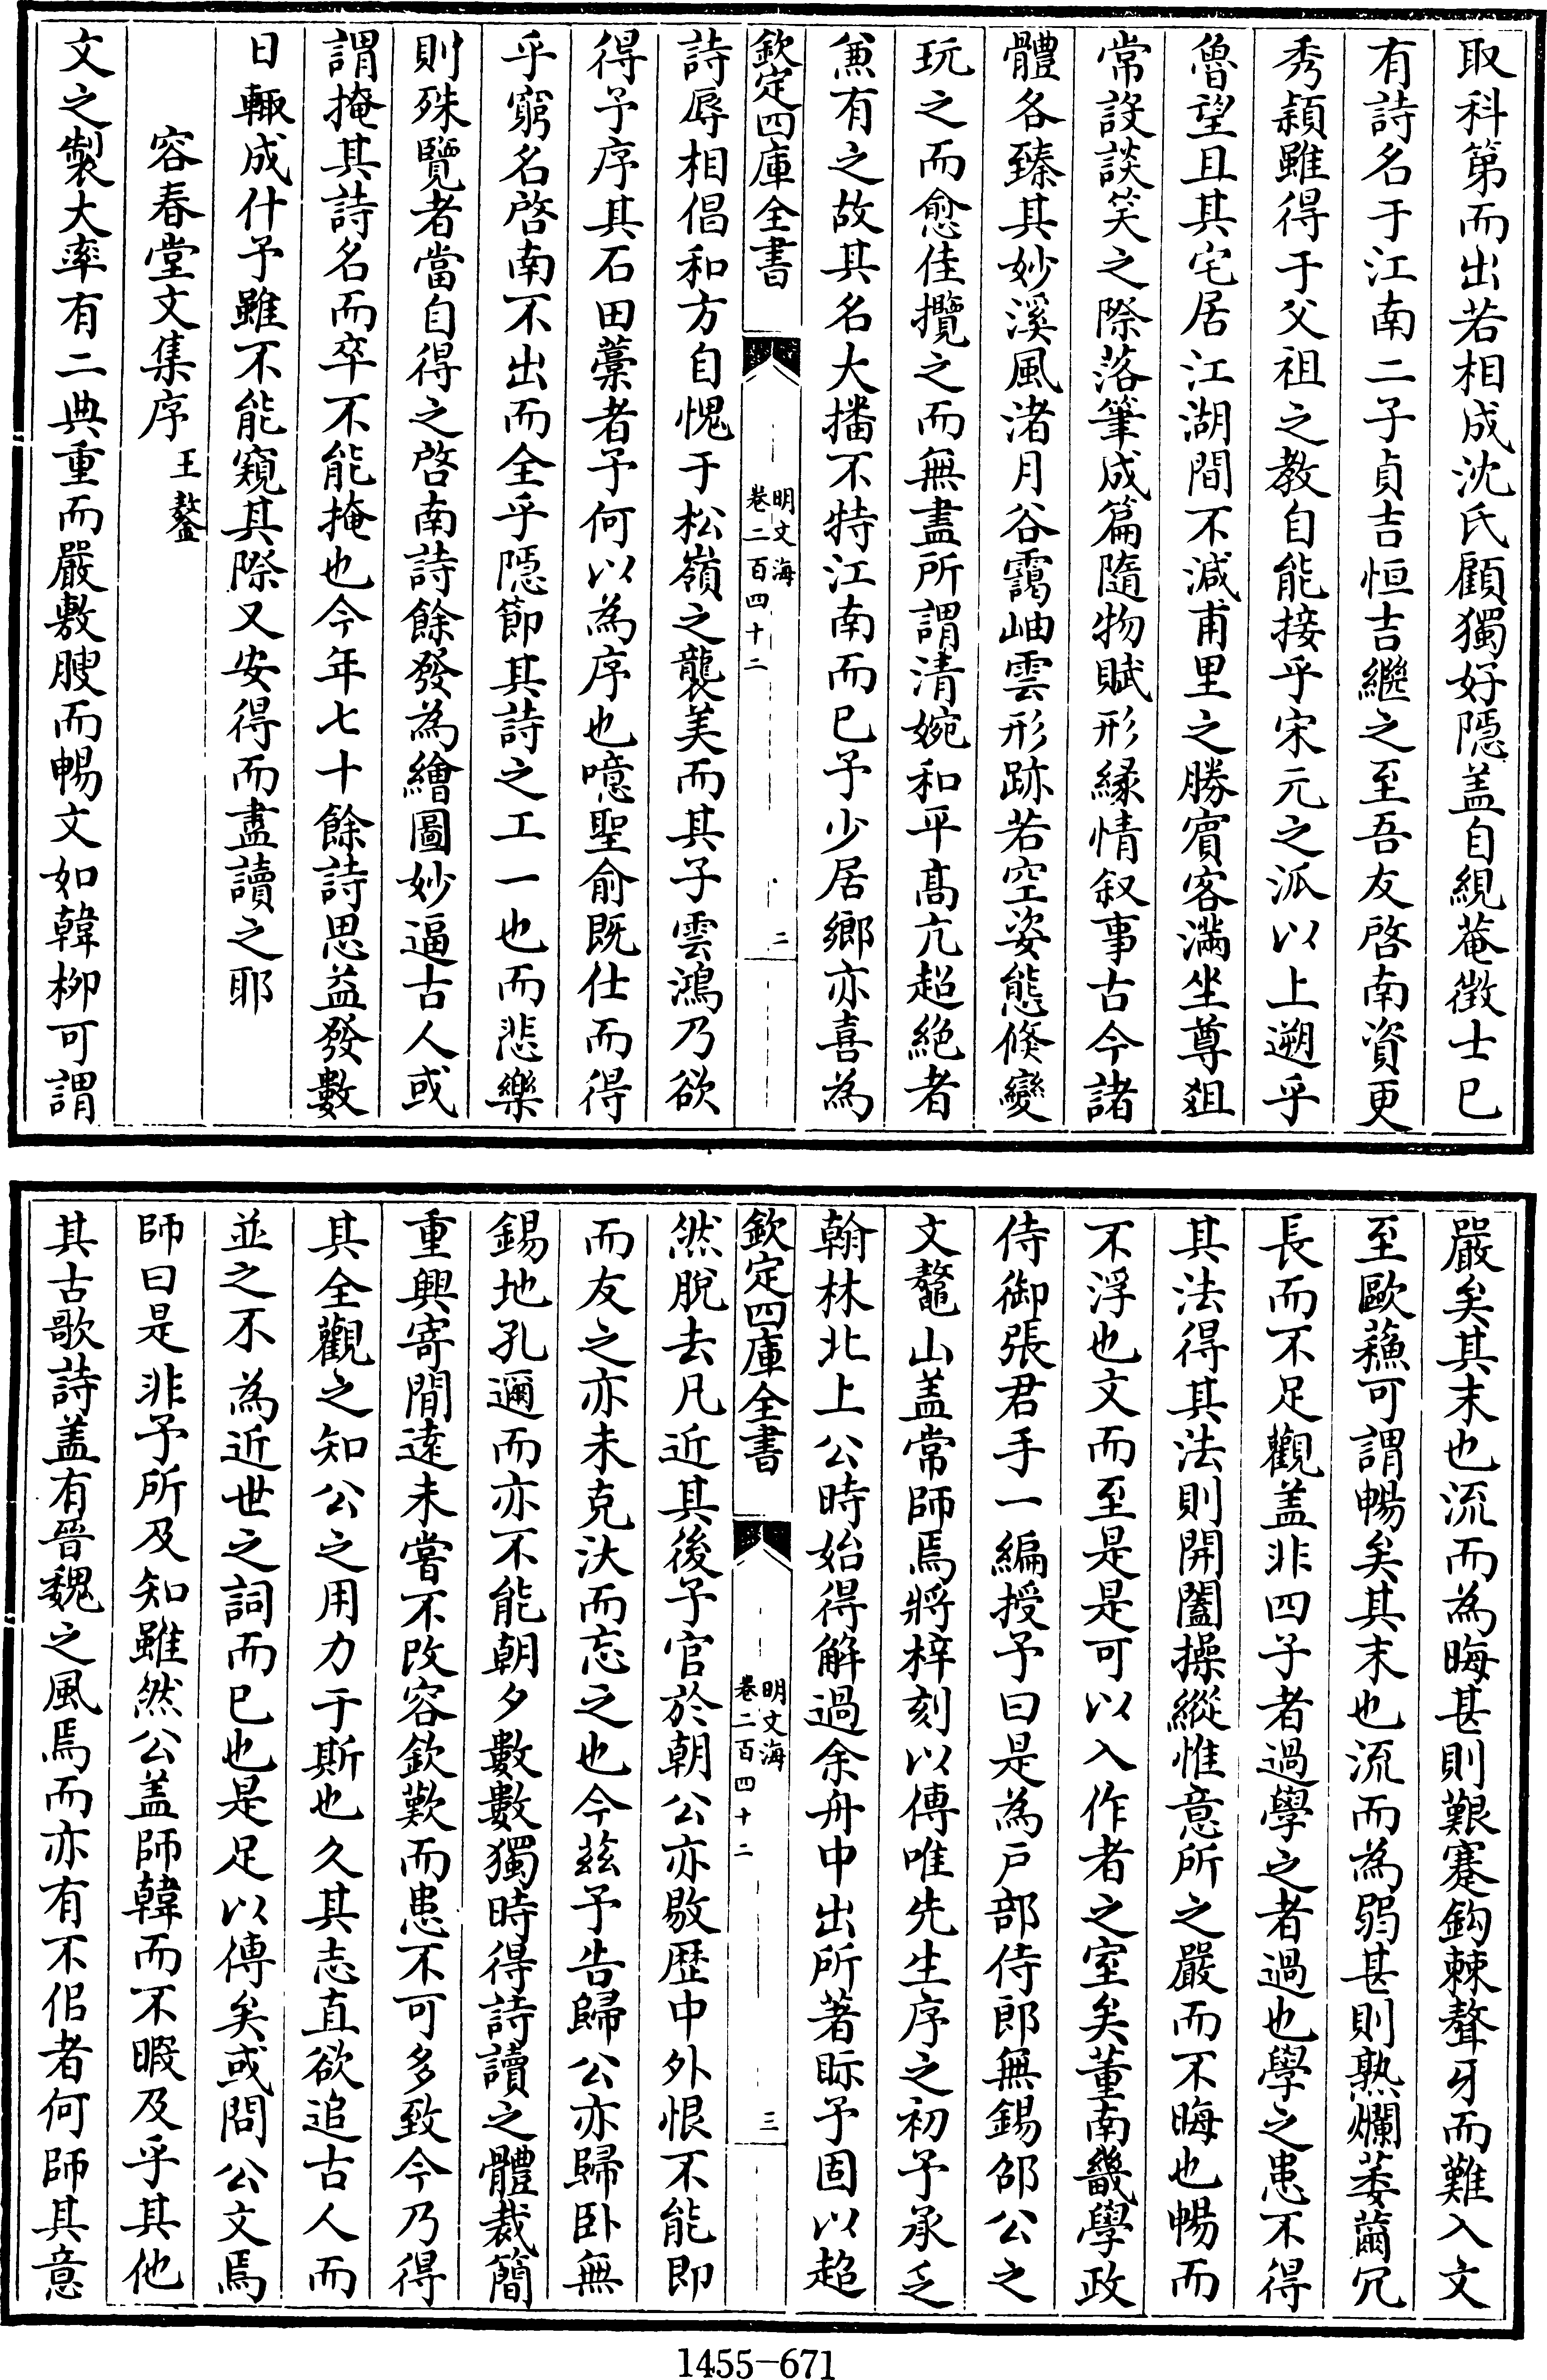 取科第而出若相成沈氏顧獨好隠盖自絸菴徴士已
有詩名于江南二子貞吉恒吉繼之至吾友啓南資更
秀穎雖得于父祖之教自能接乎宋元之派以上遡乎
魯望且其宅居江湖間不減甫里之勝賓客滿坐尊爼
常設談笑之際落筆成篇隨物賦形縁情叙事古今諸
體各臻其妙溪風渚月谷靄岫雲形跡若空姿態倐變
玩之而愈佳攬之而無盡所謂清婉和平髙亢超絶者
兼有之故其名大播不特江南而已予少居鄉亦喜為
欽定四庫全書
明文海
卷二百四十二
二
詩辱相倡和方自愧于松嶺之襲美而其子雲鴻乃欲
得予序其石田藁者予何以為序也噫聖俞既仕而得
乎窮名啓南不出而全乎隠節其詩之工一也而悲樂
則殊覽者當自得之啓南詩餘發為繪圖妙逼古人或
謂掩其詩名而卒不能掩也今年七十餘詩思益發數
日輙成什予雖不能窺其際又安得而盡讀之耶
容春堂文集序 王鏊
文之製大率有二典重而嚴敷腴而暢文如韓柳可謂
嚴矣其末也流而為晦甚則艱蹇鈎棘聱牙而難入文
至歐蘇可謂暢矣其末也流而為弱甚則熟爛萎薾冗
長而不足觀盖非四子者過學之者過也學之患不得
其法得其法則開闔操縱惟意所之嚴而不晦也暢而
不浮也文而至是是可以入作者之室矣董南畿學政
侍御張君手一編授予曰是為戸部侍郎無錫邵公之
文鼇山盖常師焉將梓刻以傳唯先生序之初予承乏
翰林北上公時始得解過余舟中出所著眎予固以超
欽定四庫全書
明文海
卷二百四十二
三
然脫去凡近其後予官於朝公亦敭歴中外恨不能即
而友之亦未克汰而忘之也今兹予告歸公亦歸卧無
錫地孔邇而亦不能朝夕數數獨時得詩讀之體裁簡
重興寄閒遠未嘗不改容欽歎而患不可多致今乃得
其全觀之知公之用力于斯也久其志直欲追古人而
並之不為近世之詞而已也是足以傳矣或問公文焉
師曰是非予所及知雖然公盖師韓而不暇及乎其他
其古歌詩盖有晉魏之風焉而亦有不佀者何師其意
1455-671